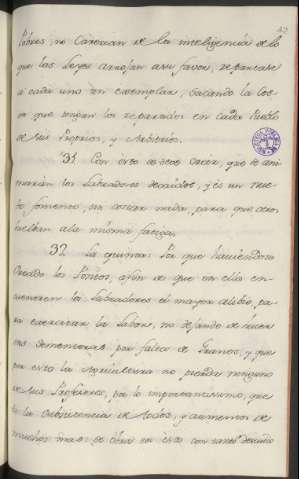 Pobres, no Carezcan de la inteligencia de lo
que las Leyes arrojan a su favor, repartase
a cada uno un exemplar, sacando la cos
ta que tengan los reparados en cada Pueblo
de sus Propios, y Arbitrios.
31 Con esto es de creer, que se ani
marian los Labradores decaidos, y es un nue
vo fomento, sin costar nada, para que se
buelban a la misma fatiga.
32 La quinta: Por que haviendose
Creado los Positos, a fin de que en ellos en
cuentren los Labradores el mayor alibio, pa
ra exercitar la Labor, no dejando de hacer
sus sementeras por falta de Granos, y que
por esto la Agricultura no pierda ninguno
de sus Profesores, por lo importantisimo, que
es la subsistencia de todos, y aumentos de
muchos mas: se obra en esto con tanto descuido